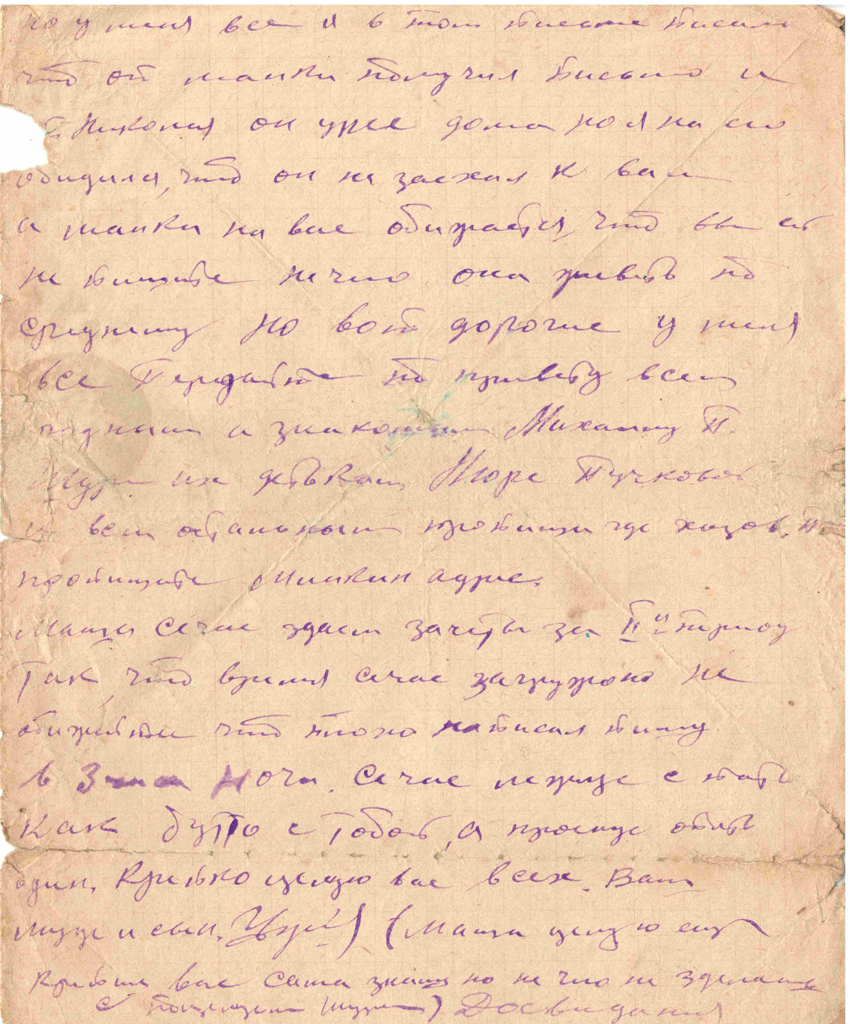 но у меня все я в том письме писал
что от маньки получил письмо и
Николая он уже дома но я на его
обидился, что он не заехал к вам
а манька на вас обижается, что вы ей
не пишите нечего она живеть по
среднему Но вот дорогие у меня
все Передайте по привету всем
родным и знакомым Михаилу П.
их деткам Нюре Пучковой
и всем остальным пропиши где
пропишите Минькин адрес.
Маша сечас здаем зачеты за II й период
Так что время сечас загружоно не
обижайтесь что плохо написал пишу
в 3 часа Ночи. Сечас лежиш спать
как бутто с тобой, а проснусь опять
один. Крепко целую вас всех. Ваш
муж и сын. (Маша целую еще
крепче вас сама знаеш но не чего не зделаеш
с поцелуем муж) Досвидания